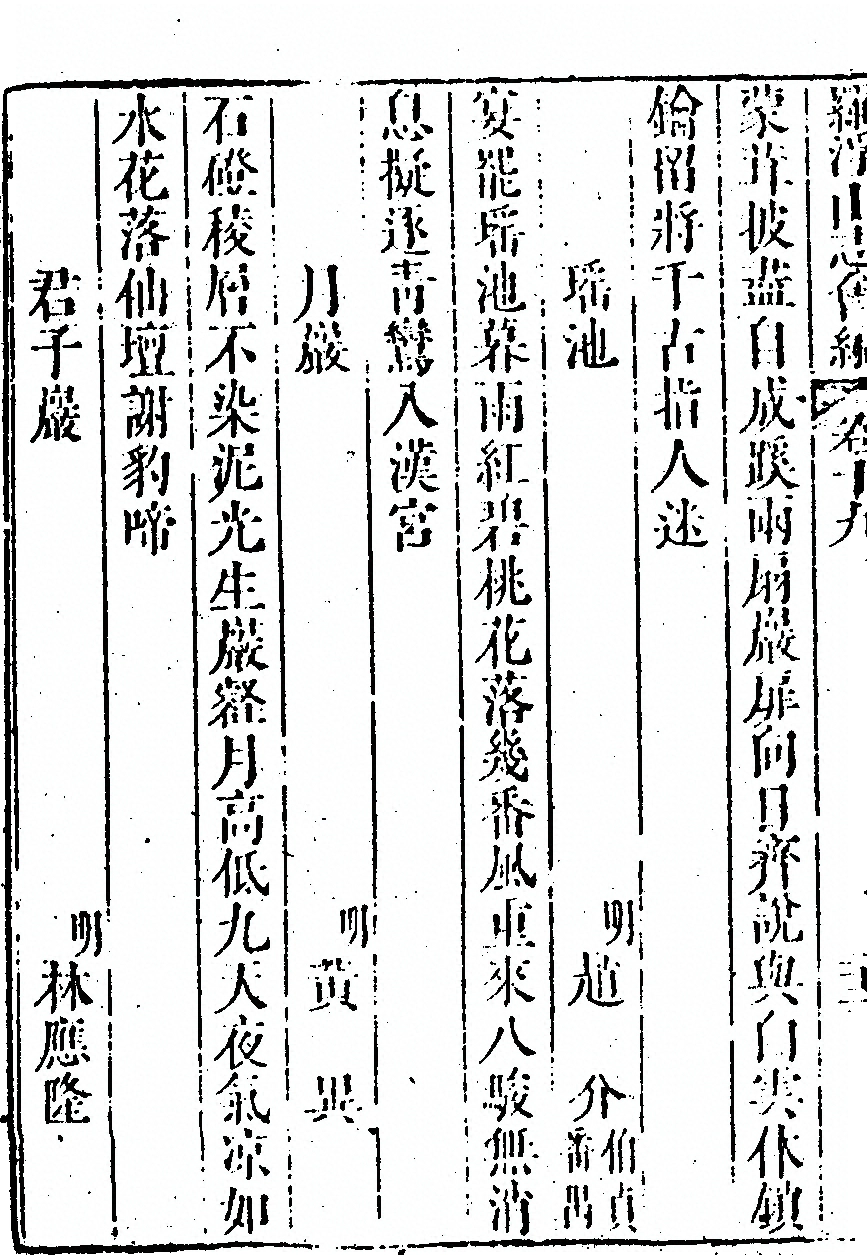 羅浮山志會編 卷十九
蒙茸披盡自成蹊兩扇巖扉向日齊說與白雲休鎖
鑰留將千古指人迷
瑶池 明 趙 介 伯貞 番禺
宴罷瑶池暮雨紅碧桃花落幾番風重來八駿無消
息擬逐青鸞入漢宮
月巖 明 黃 異
石磴稜層不染泥光生巖壑月高低九天夜氣凉如
水花落仙壇謝豹啼
君子巖 明 林應隆